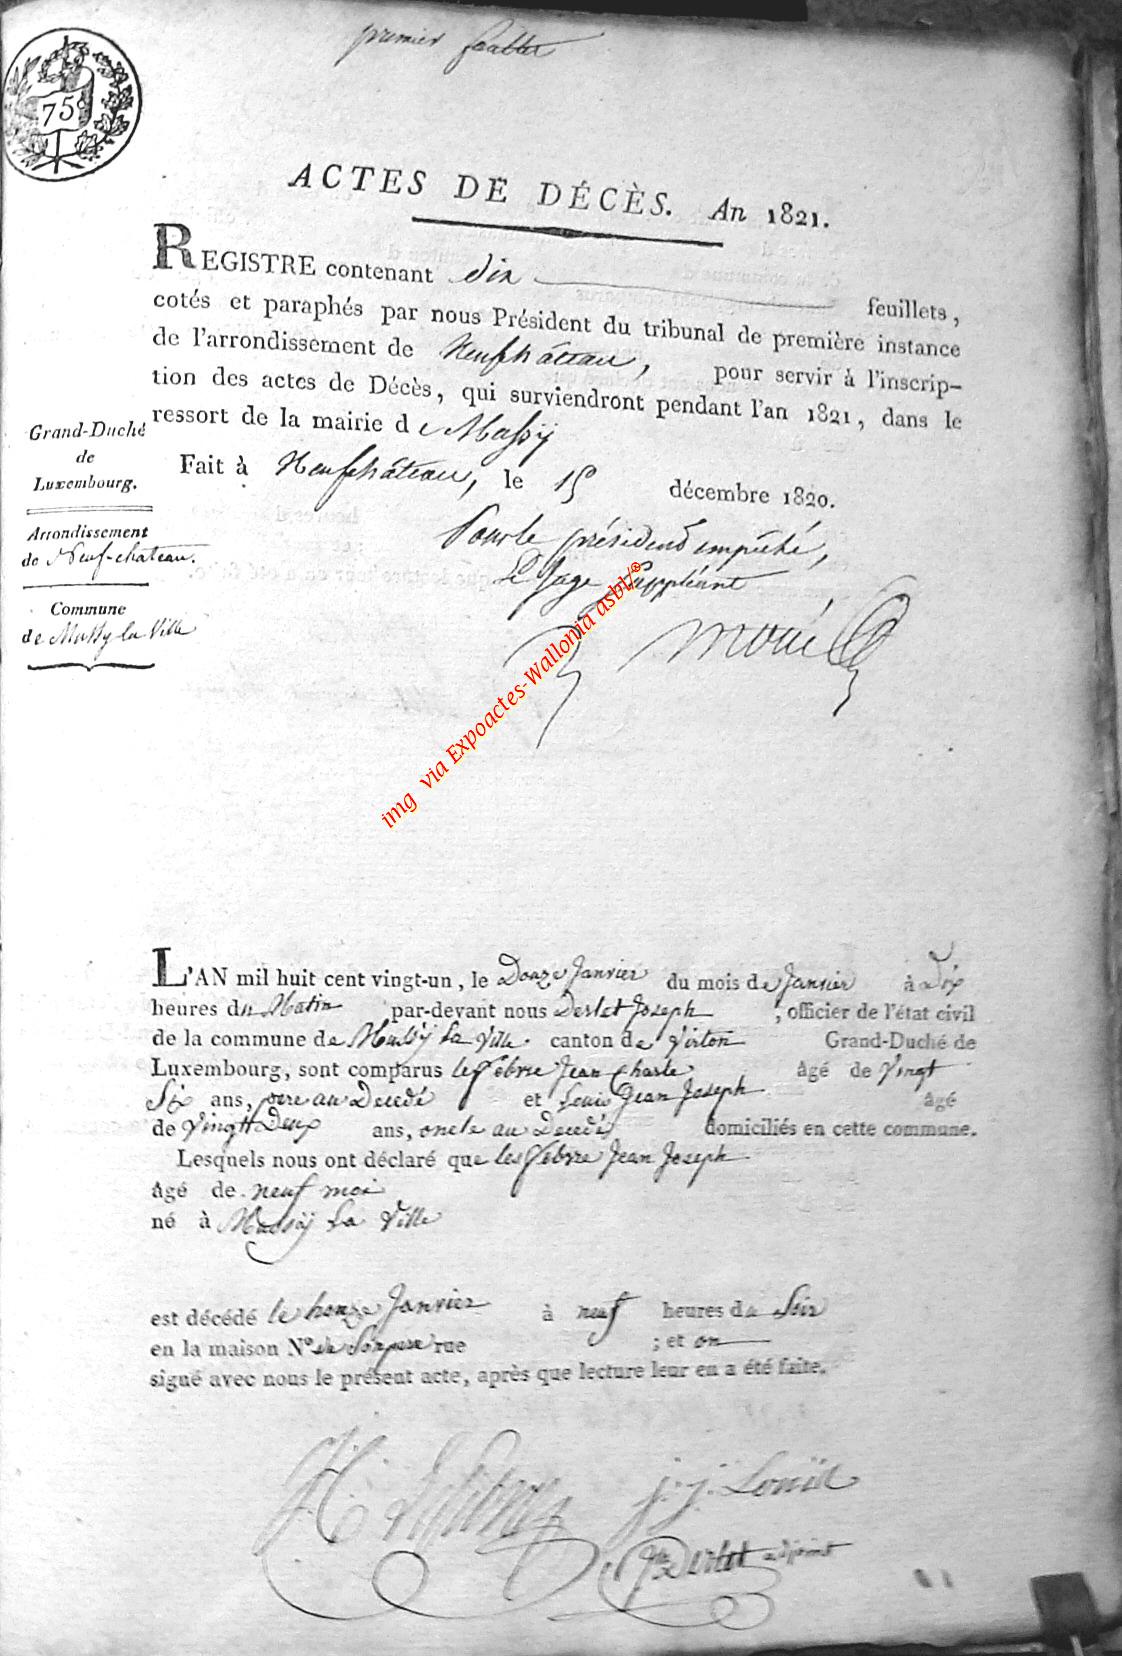 premier feuillet
75c
ACTES DE DÉCÈS. An 1821.
REGISTRE contenant dix feuillets,
cotés et paraphés par nous Président du tribunal de première instance
de l'arrondissement de Neufchâteau, pour servir à l'inscrip-
tion des actes de Décès, qui surviendront pendant l'an 1821, dans le
ressort de la mairie de Mussy
Fait à Neufchâteau, le 15 décembre 1820.
Pour le président empêché,
Le Juge Suppléant
Grand-Duché
de
Luxembourg.
Arrondissement
de Neuf-chateau.
Commune
de Mussy la Ville
img via Expoactes-Wallonia asbl/®
L'AN mil huit cent vingt-un, le Douze Janvier du mois de Janvier à Dix
heures du Matin par-devant nous Derlet Joseph, officier de l'état civil
de la commune de Mussÿ La Ville. canton de Virton Grand-Duché de
Luxembourg, sont comparus le febvre Jean Charle âgé de Vingt
Six ans, pere au Decedé et Louis Jean Joseph âgé
de Vingtt Deux ans, oncle au Decedé domiciliés en cette commune.
Lesquels nous ont déclaré que les febvre Jean Joseph
âgé de neuf moi
né à Mussÿ La Ville
est décédé le honze Janvier à neuf heures du Soir
en la maison N.º de Son pere rue ; et on
signé avec nous le présent acte, après que lecture leur en a été faite.
j. j. Louis
Derlet adjoint